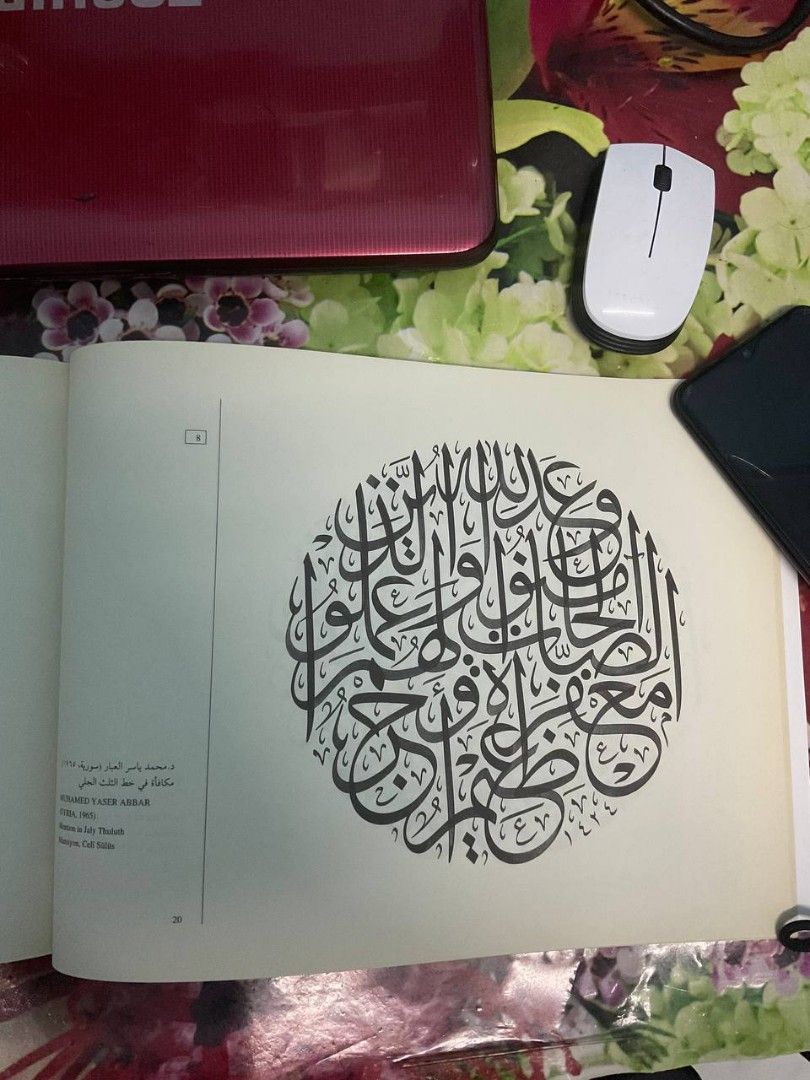 8
وعد الله الذين
آمنوا وعملوا
الصالحات لهم
مغفرة وأجر
عظيم
١٤٢٤
د. محمد ياسر العبار (سورية، ١٩٦٥)
مكافأة في خط الثلث الجلي
MUHAMED YASER ABBAR
(SYRIA, 1965)
Mention in Jaly Thuluth
Mansiyon, Celî Sülüs
20